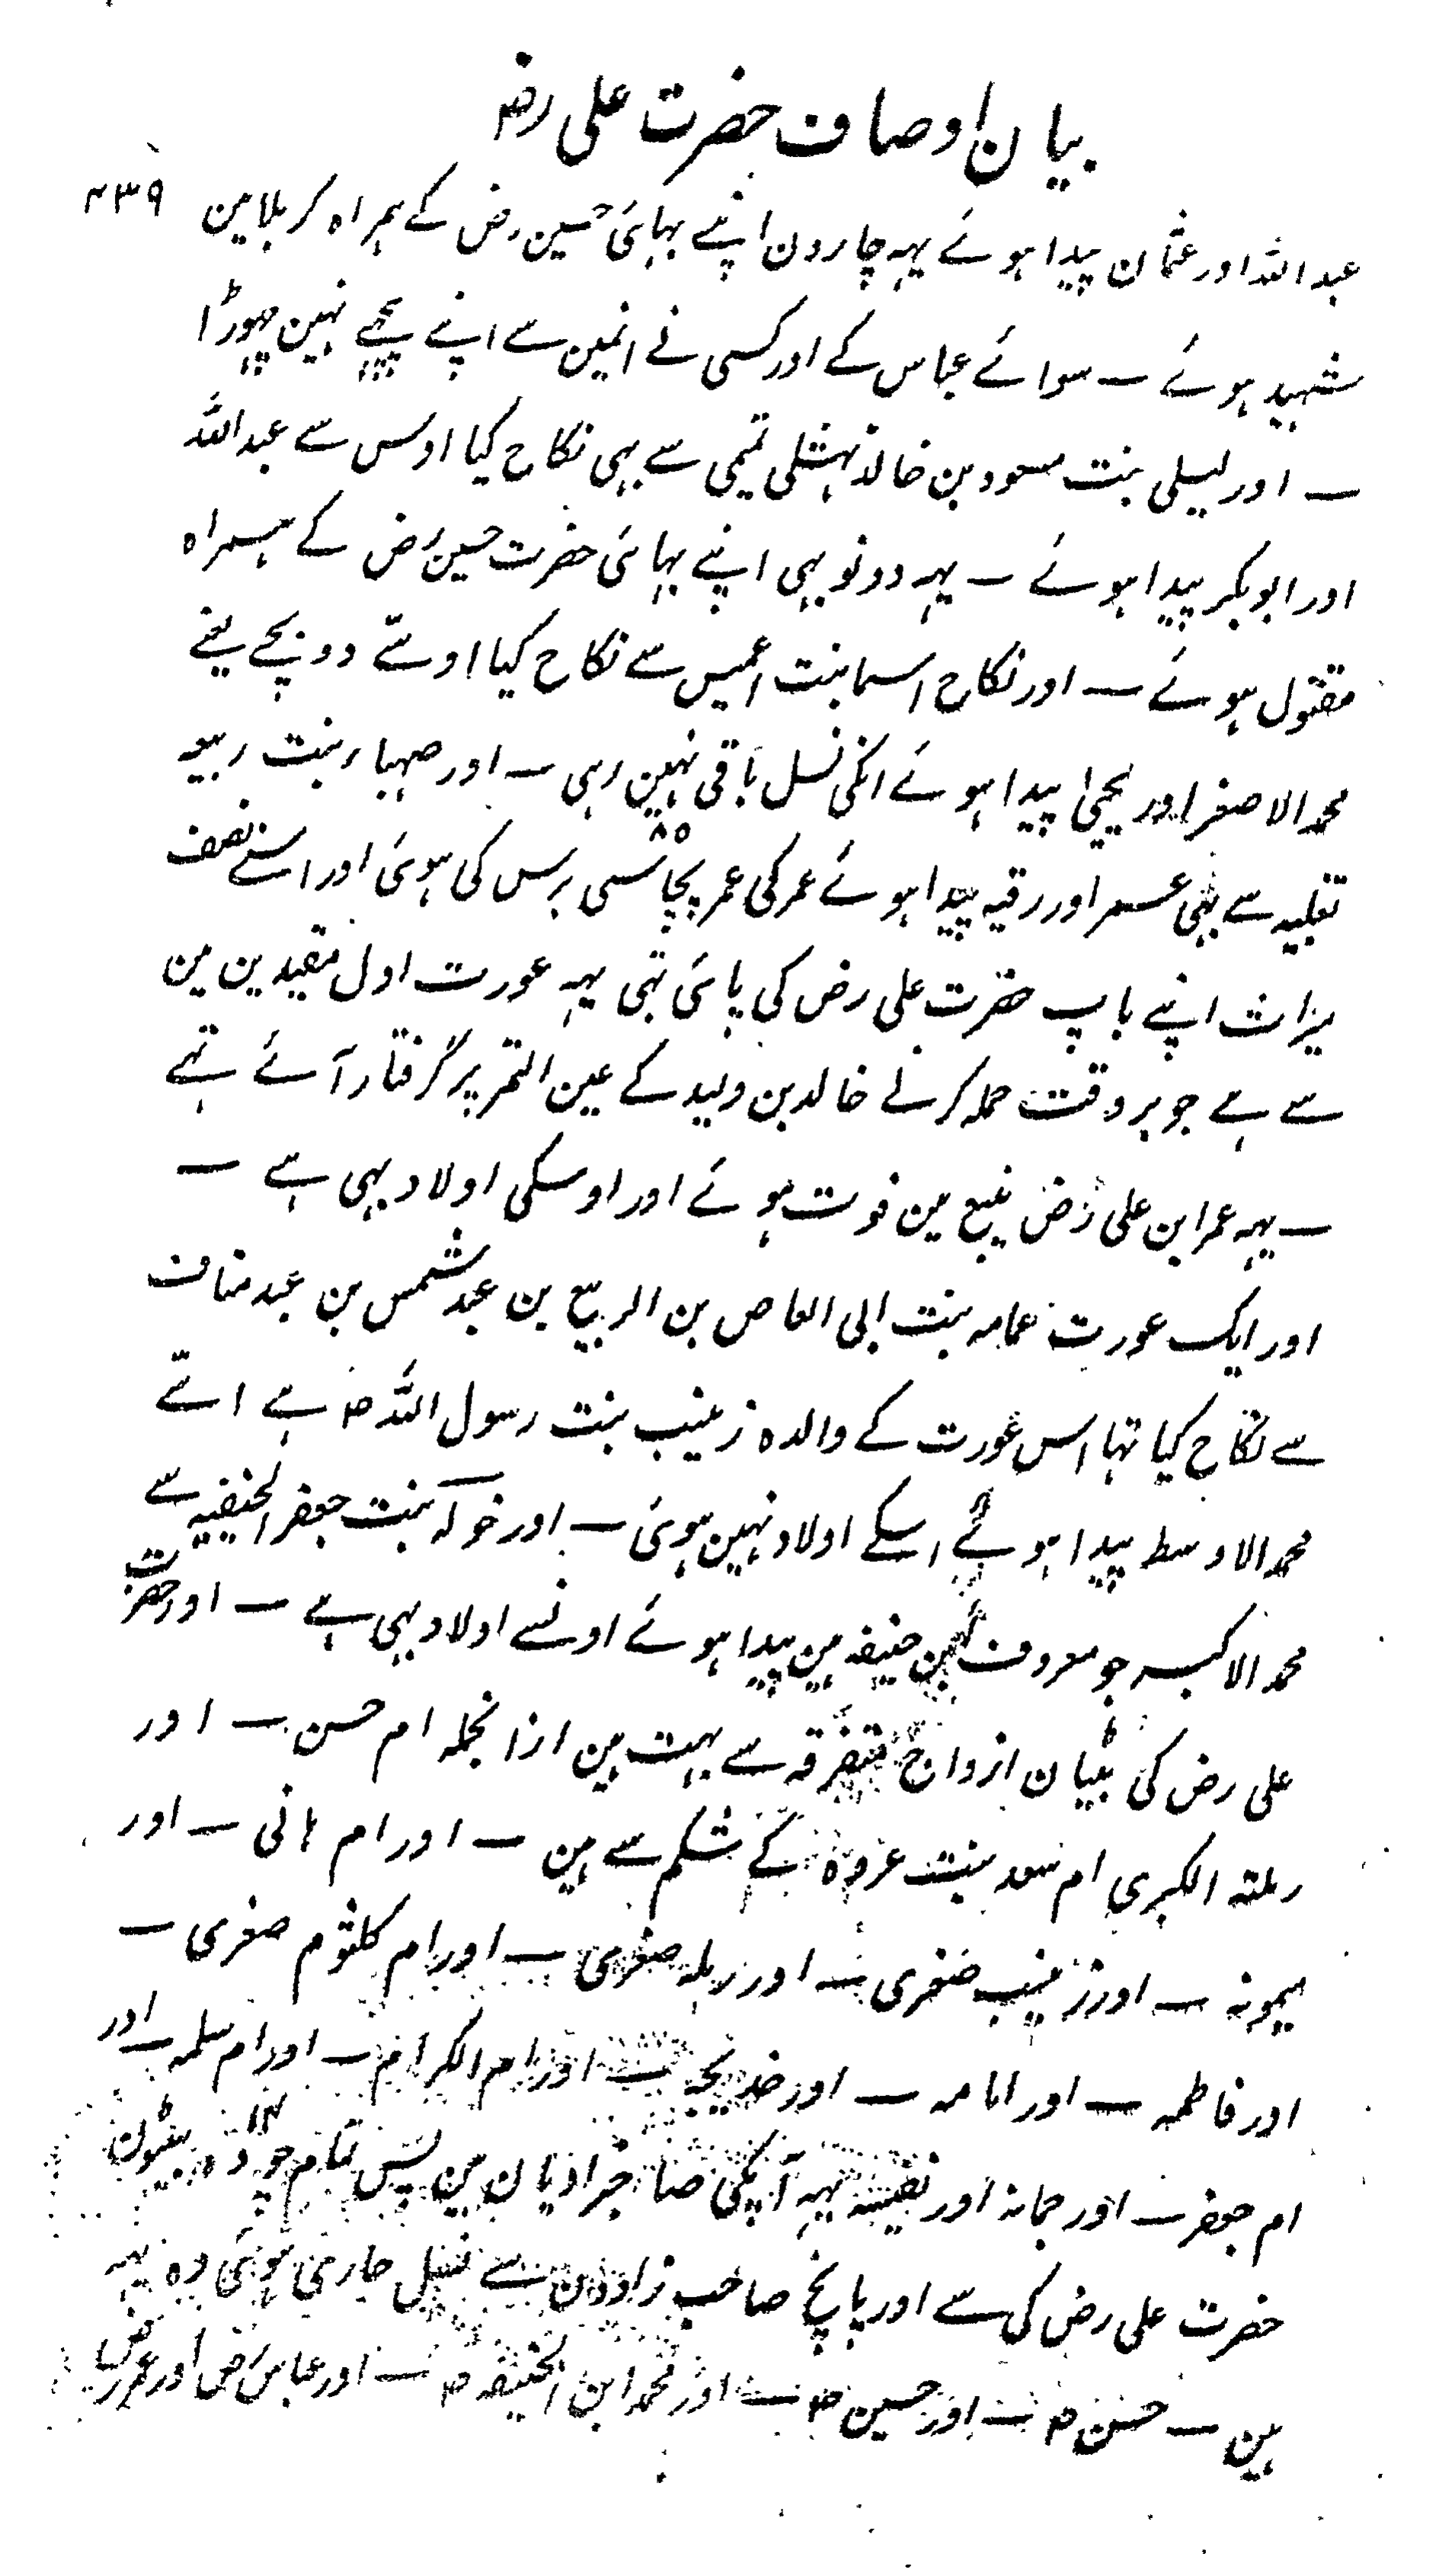 بیان اوصاف حضرت علی رضہ
۴۳۹
عبد اللہ اور عثمان پیدا ہوئے یہہ چارون اپنے بہائی حسین رض کے ہمراہ کربلا مین
شہید ہوئے ۔ سوائے عباس کے اور کسی نے انمین سے اپنے پیچھے نہین چہوڑا
۔ اور لیلی بنت مسعود بن خالد نہشلی تمیمی سے بہی نکاح کیا اوس سے عبد اللہ
اور ابوبکر پیدا ہوئے ۔ یہہ دونو بہی اپنے بہائی حضرت حسین رض کے ہمراہ
مقتول ہوئے ۔ اور نکاح اسما بنت اعمیس سے نکاح کیا اوسّے دو بچے یعنے
محمد الاصغر اور یحیٰی پیدا ہوئے انکی نسل باقی نہین رہی ۔ اور صہباء بنت ربیعہ
تغلبیہ سے بہی عمر اور رقیہ پیدا ہوئے عمر کی عمر پچاسی ۸۵ برس کی ہوئی اور اسنے نصف
میراث اپنے باپ حضرت علی رض کی پائی تہی یہہ عورت اول مقیدین مین
سے ہے جو بر وقت حملہ کرنے خالد بن ولید کے عین التمر پر گرفتار آئے تہے
۔ یہہ عمر ابن علی رض ینبع مین فوت ہوئے اور اوسکی اولاد بہی ہے ۔
اور ایک عورت عمامہ بنت ابی العاص بن الربیع بن عبد شمس بن عبد مناف
سے نکاح کیا تہا اس عورت کے والدہ زینب بنت رسول اللہ ص ہے اسّے
محمد الاوسط پیدا ہوئے اسکے اولاد نہین ہوئی ۔ اور خولہ بنت جعفر الحنیفیہ سے
محمد الاکبر جو معروف بن حنیفہ ہین پیدا ہوئے اونسے اولاد بہی ہے ۔ اور حضرت
علی رض کی بیٹیان ازواج متفرقہ سے بہت ہین ازانجملہ ام حسن ۔ اور
رملتہ الکبری ام سعد بنت عروہ کے شکم سے ہین ۔ اور ام ہانی ۔ اور
میمونہ ۔ اور زینب صغری ۔ اور رملہ صغری ۔ اور ام کلثوم صغری ۔
اور فاطمہ ۔ اور امامہ ۔ اور خدیجہ ۔ اور ام الکرام ۔ اور ام سلمہ ۔ اور
ام جعفر ۔ اور جمانہ اور نفیسہ یہہ آپکی صاحبزادیان ہین پس تمام چودہ ۱۴ بیٹیون
حضرت علی رض کی سے اور پانچ صاحب زادون سے نسل جاری ہوئی وہ یہہ
ہین ۔ حسن ص ۔ اور حسین ص ۔ اور محمد ابن الحنیفہ ص ۔ اور عباس رض اور عمر رض